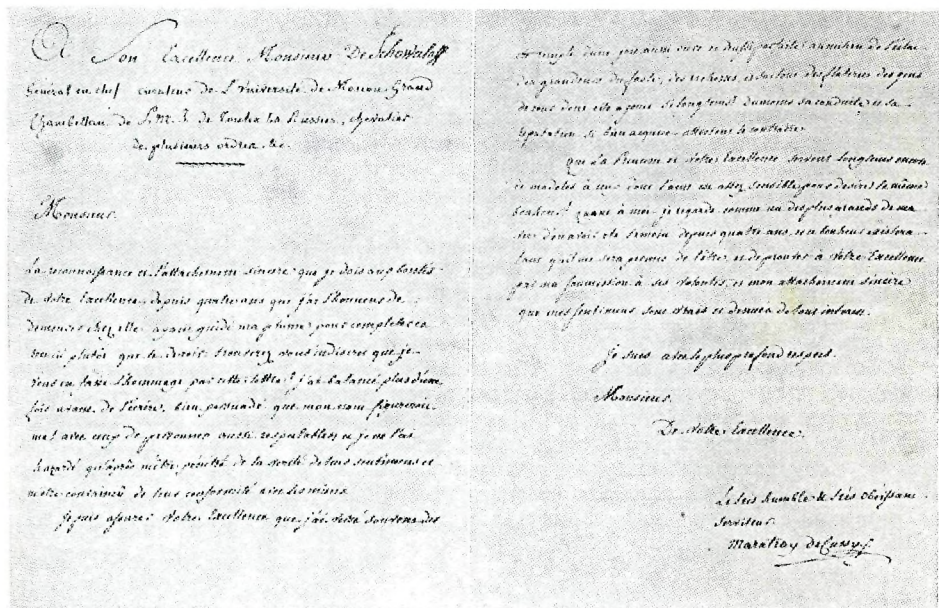 A Son Excellence Monsieur De Schowaloff
Général en chef curateur de L'Université de Moscou Grand
Chambellan de S.M.I. de Toutes les Russies, chevalier
de plusieurs ordres &c.
Monsieur
La reconnoissance et l'attachement sincere que je dois aux bontés
de Votre Excellence depuis quatre ans que j'ai l'honneur de
demeurer chez elle ayant guidé ma plume pour completer ce
recueil plutôt que le devoir trouverez vous indiscret que je
vous en fasse l'hommage par cette lettre? j'ai balancé plus d'une
fois avant de l'écrire, bien persuadé que mon nom figureroit
mal avec ceux de personnes aussi respectables; et je ne l'ai
hazardé qu'après m'être pénétré de la verité de leurs sentimens et
m'être convaincû de leur conformité avec les miens
Je puis assurer Votre Excellence que j'ai versé souvent des
d'une joie aussi vive et du si parfaite! au milieu de l'éclat
des grandeurs du faste, des richesses, et surtout des flateries des gens
de cour dont elle a joui si longtems! du moins sa conduite et sa
reputation si bien acquise attestent le contraire.
Que La Princesse et Votre Excellence servent longtems encore
de modeles à ceux dont l'ame est assez sensible pour desirer le même
bonheur! quant à moi je regarde comme un des plus grands de ma
vie d'en avoir été témoin depuis quatre ans, et ce bonheur existera
tant qu'il me sera permis de l'être, et de prouver à Votre Excellence
par ma soumission à ses volontés, et mon attachement sincère
que mes sentimens sont vrais et denués de tout interest.
Je suis avec le plus profond respect.
Monsieur
De Votre Excellence.
Le très humble & très obéissant
Serviteur
Maratray De Cussy